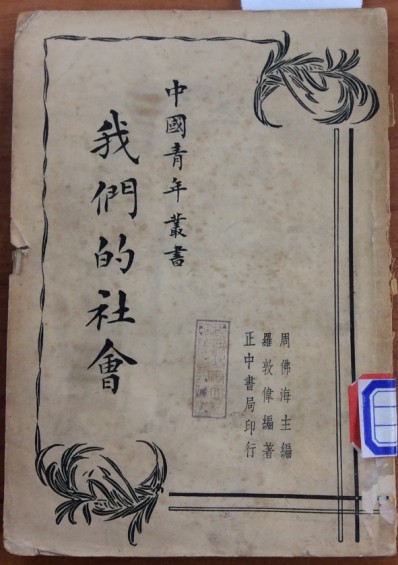 中國青年叢書
我們的社會
周佛海主編
羅敦偉編著
正中書局印行